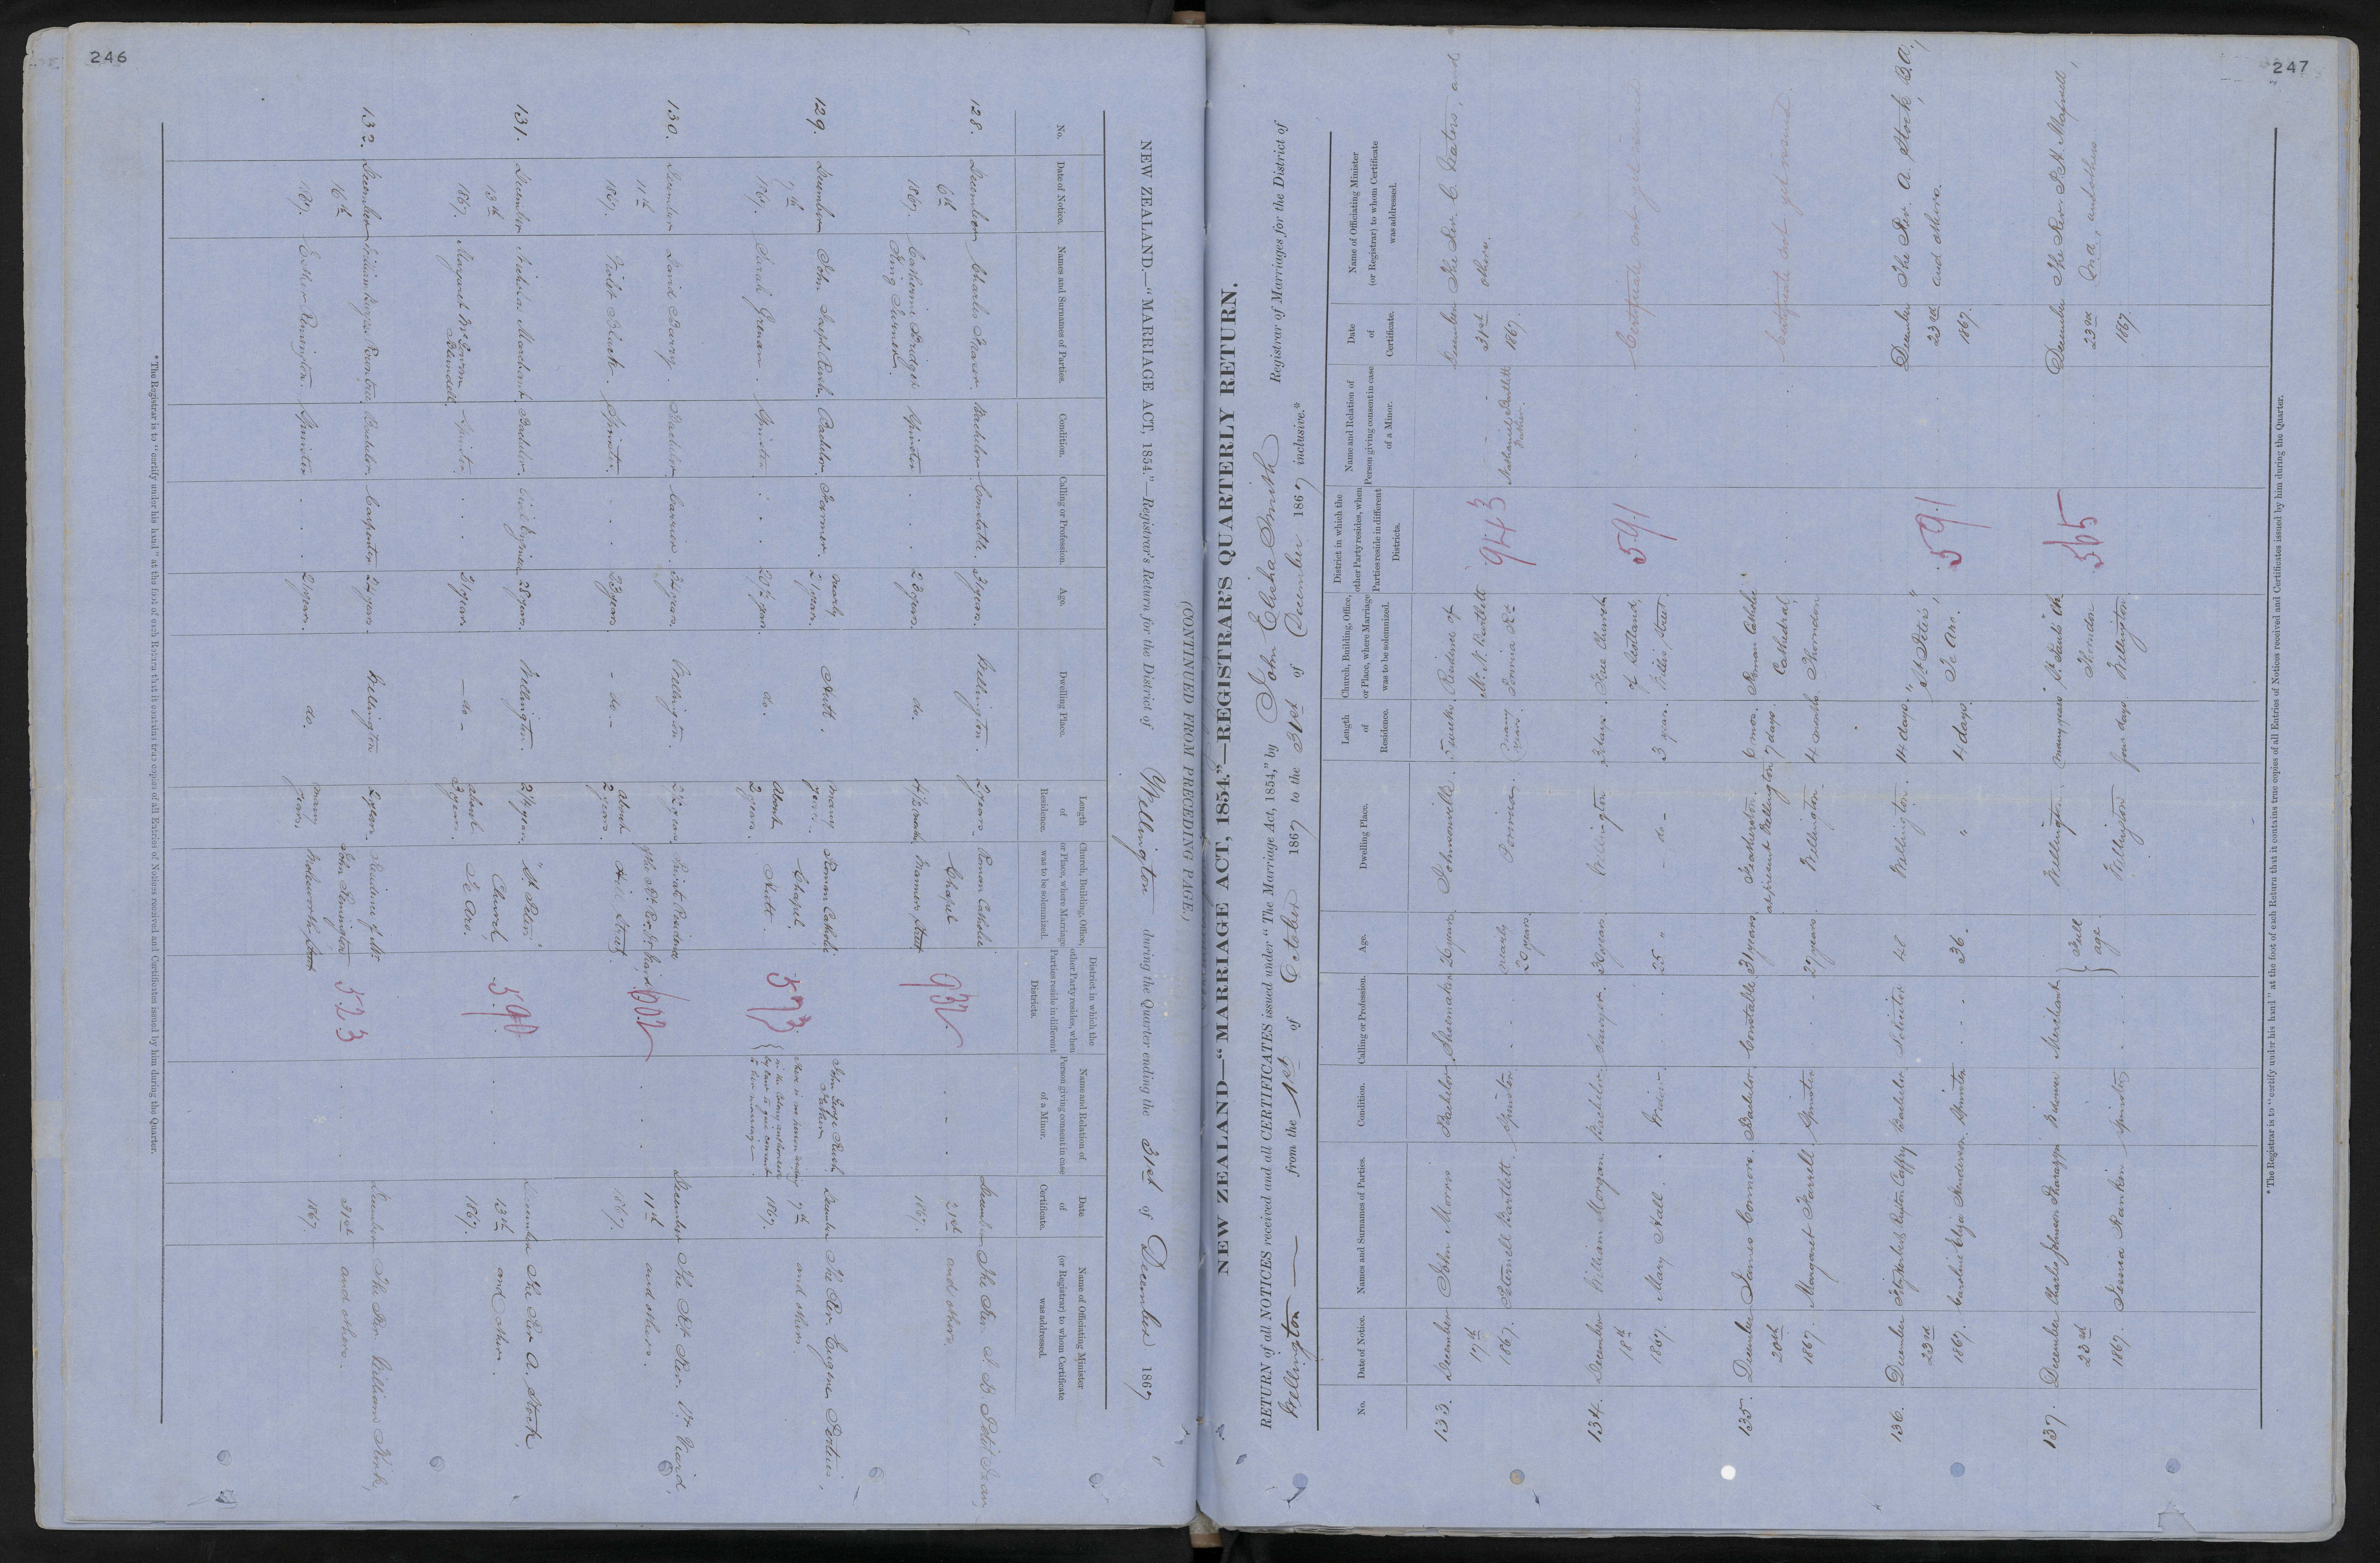 246
(CONTINUED FROM PRECEDING PAGE.)
NEW ZEALAND.—"MARRIAGE ACT, 1854."—Registrar's Return for the District of Wellington during the Quarter ending the 31st of December 1867
No.
Date of Notice.
Names and Surnames of Parties.
Condition.
Calling or Profession.
Age.
Dwelling Place.
Length of Residence.
Church, Building, Office, or Place, where Marriage was to be solemnized.
District in which the other Party resides, when Parties reside in different Districts.
Name and Relation of Person giving consent in case of a Minor.
Date of Certificate.
Name of Officiating Minister (or Registrar) to whom Certificate was addressed.
128. December Charles Bachelor Constable. 31 years. Wellington. 2 years. Roman Catholic December The Rev.
6th Chapel 21st and others.
1867. Spinster 23 years. do. Street 932 1867.
129. December John Joseph Rush. Bachelor. Farmer. nearly 21 years. Hutt. many years. Roman Catholic John George Rush December The Rev. Eugene
7th Chapel, Father 7th and others.
1867. Sarah Spinster. do. About 2 years. Hutt. 573 1867.
130. December David Bachelor Carrier 34 years. Wellington. 2½ years Private Residence December The Rt Rev. Dr Viard,
11th of the Rt. Rev. 11th and others.
1867. Violet Black. Spinster. 23 years. - do - about 2 years. Hill Street. 602 1867.
131. December Nicholas Marchant. Bachelor. Civil Engineer 28 years. Wellington. 2¼ years. St Peters' December The Rev A. Stock,
13th Church, 13th and others.
1867. Margaret Spinster. 21 years. - do - about 3 years. Te Aro. 590 1867.
132. December Rowntree Bachelor Carpenter 24 years. Wellington 2 years. Residence of Mr December The Rev. William Kirk,
16th John Pennington 21st and others.
1867. Esther Pennington. Spinster 21 years. do. many years. Molesworth Street 523 1867
*The Registrar is to "certify under his hand" at the foot of each Return that it contains true copies of all Entries of Notices received and Certificates issued by him during the Quarter.
247
NEW ZEALAND—"MARRIAGE ACT, 1854."—REGISTRAR'S QUARTERLY RETURN.
RETURN of all NOTICES received and all CERTIFICATES issued under "The Marriage Act, 1854," by John Elisha Smith Registrar of Marriages for the District of
Wellington from the 1st of October 1867 to the 31st of December 1867 inclusive.*
No.
Date of Notice.
Names and Surnames of Parties.
Condition.
Calling or Profession.
Age.
Dwelling Place.
Length of Residence.
Church, Building, Office, or Place, where Marriage was to be solemnized.
District in which the other Party resides, when Parties reside in different Districts.
Name and Relation of Person giving consent in case of a Minor.
Date of Certificate.
Name of Officiating Minister (or Registrar) to whom Certificate was addressed.
133. December John Morris Bachelor Shoemaker 26 years. Johnsonville. 5 weeks. Residence of December The Rev. C. Waters, and
17th Mr. N. Bartlett 943 31st others.
1867. Bartlett. Spinster nearly 20 years. Porirua. many years. Porirua Rd. Nathaniel Bartlett Father. 1867.
134. December William Morgan Bachelor Sawyer. 30 years. Wellington 3 days. Free Church Certificate not yet issued
18th of Scotland, 591
1867. Mary Hall. Widow. 25 " - do - 3 years. Willis Street.
135. December James Connors. Bachelor Constable 31 years. Featherston. 6 mos. Roman Catholic Certificate not yet issued
20th at present Wellington 7 days. Cathedral,
1867. Margaret Farrell Spinster 27 years. Wellington. 4 months. Thorndon
136. December Caffry Bachelor Solicitor 42 Wellington. 14 days. "St Peter's" December The Rev. A. Stock, B.A.,
23rd Te Aro. 591 23rd and others.
1867. Caroline Eliza Henderson. Spinster 36. " 4 days. 1867.
137. December Charles Johnson Pharazyn Widower Merchant Full age. Wellington. many years St. Paul's Ch. December The Rev. P. H. Maxwell,
23rd Thorndon 565 23rd and others
1867. Jessica Rankin Spinster Wellington four days. Wellington 1867.
*The Registrar is to "certify under his hand" at the foot of each Return that it contains true copies of all Entries of Notices received and Certificates issued by him during the Quarter.